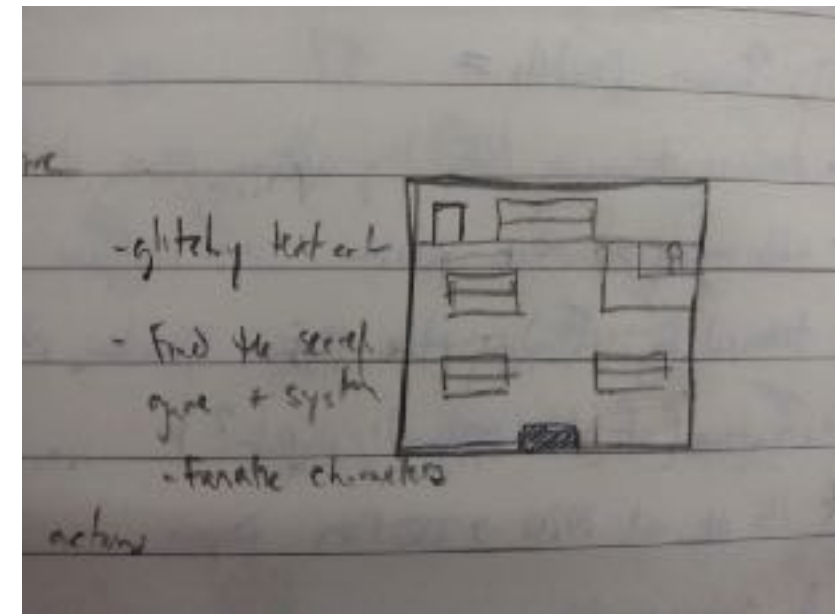 - glitchy text art
- Find the secret
game + system
- Fanatic characters
actions